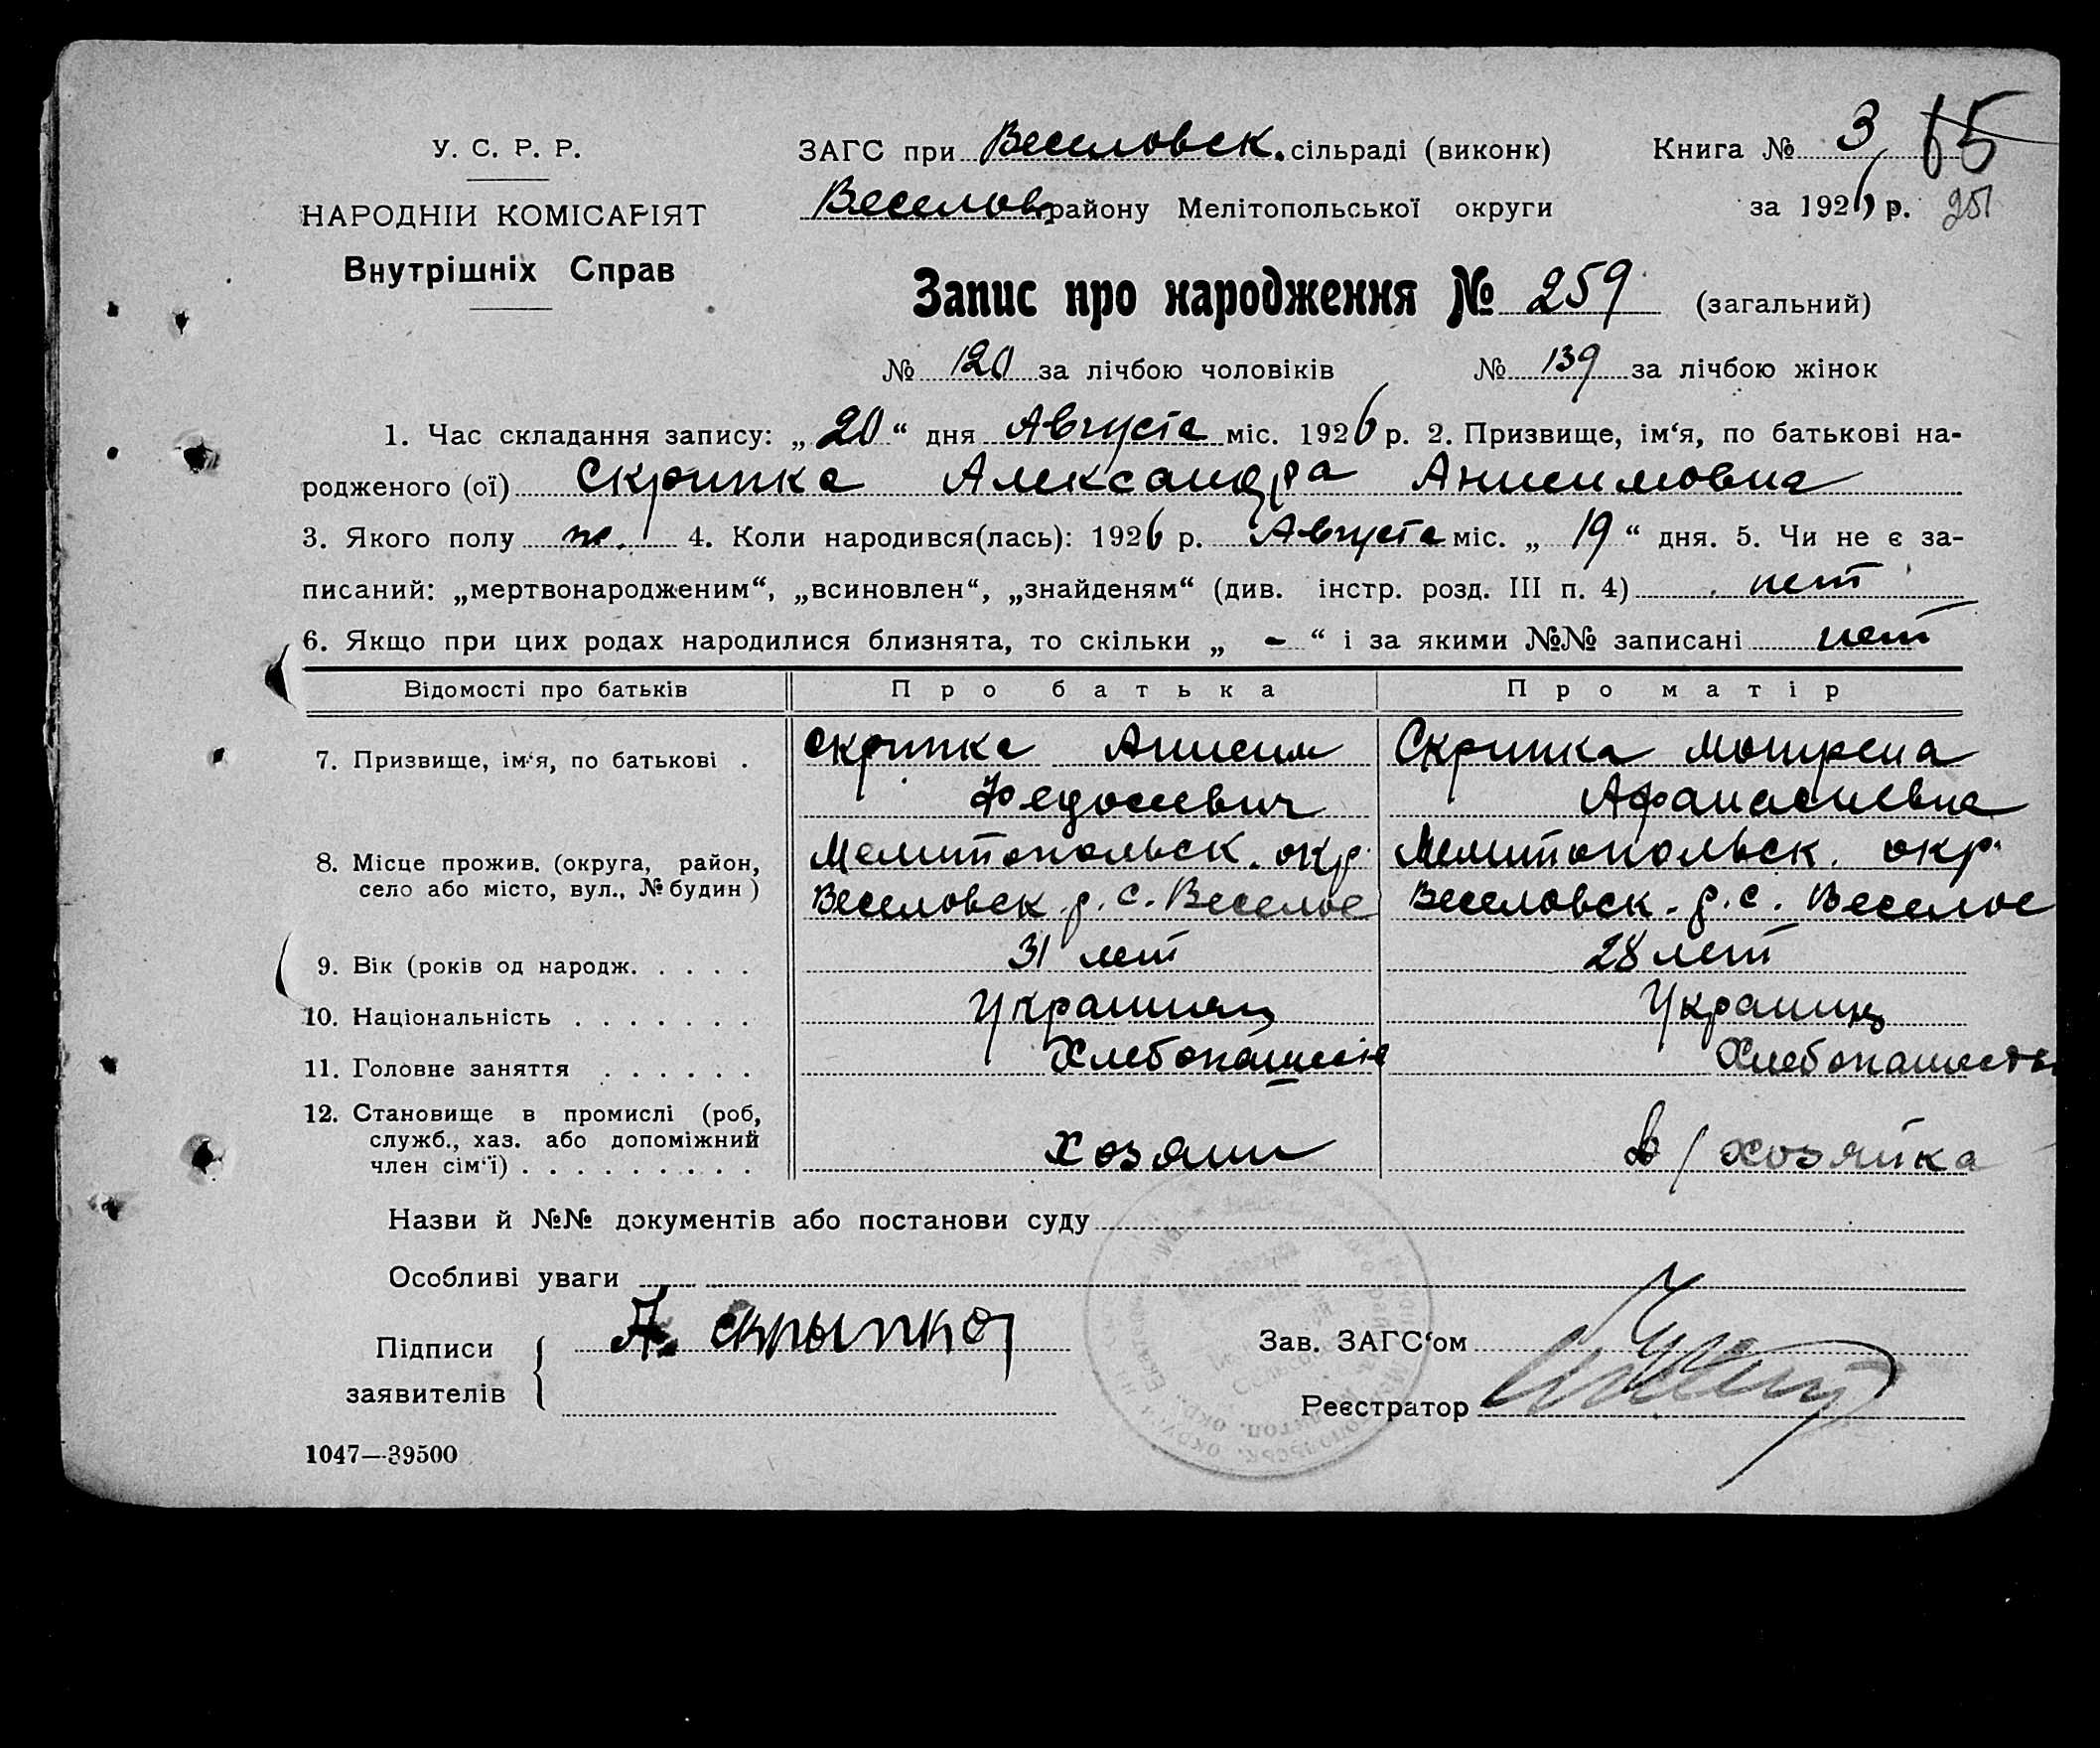 У. С. Р. Р.
НАРОДНІЙ КОМІСАРІЯТ
Внутрішніх Справ
ЗАГС при Веселовск. сільраді (виконк)
Веселов району Мелітопольської округи
Книга № 3
65
за 1926 р. 251
Запис про народження № 259 (загальний)
№ 120 за лічбою чоловіків № 139 за лічбою жінок
1. Час складання запису: „20“ дня Августа міс. 1926 р. 2. Призвище, ім‘я, по батькові на-
родженого (ої) Скрипка Александра Анисимовна
3. Якого полу ж. 4. Коли народився(лась): 1926 р. Августа міс. „19“ дня. 5. Чи не є за-
писаний: „мертвонародженим“, „всиновлен“, „знайденям“ (див. інстр. розд. III п. 4) нет
6. Якщо при цих родах народилися близнята, то скільки „ - “ і за якими №№ записані нет
Відомості про батьків Про батька Про матір
7. Призвище, ім‘я, по батькові . Скрипка Анисим Скрипка Мотрена
Федосеевич Афанасиевна
8. Місце прожив. (округа, район, Мелитопольск. окр. Мелитопольск. окр.
село або місто, вул., № будин) Веселовск. р. с. Веселое Веселовск. р. с. Веселое
9. Вік (років од народж. . . . . 31 лет 28 лет
10. Національність . . . . . . . Украинец Украинц
11. Головне заняття . . . . . . Хлебопашест Хлебопашеств
12. Становище в промислі (роб,
служб., хаз. або допоміжний
член сім‘ї) . . . . . . . . . Хозяин д/хозяйка
Назви й №№ документів або постанови суду
Особливі уваги
Підписи
заявителів
А. Скрыпка
Зав. ЗАГС‘ом
Реєстратор
1047—39500